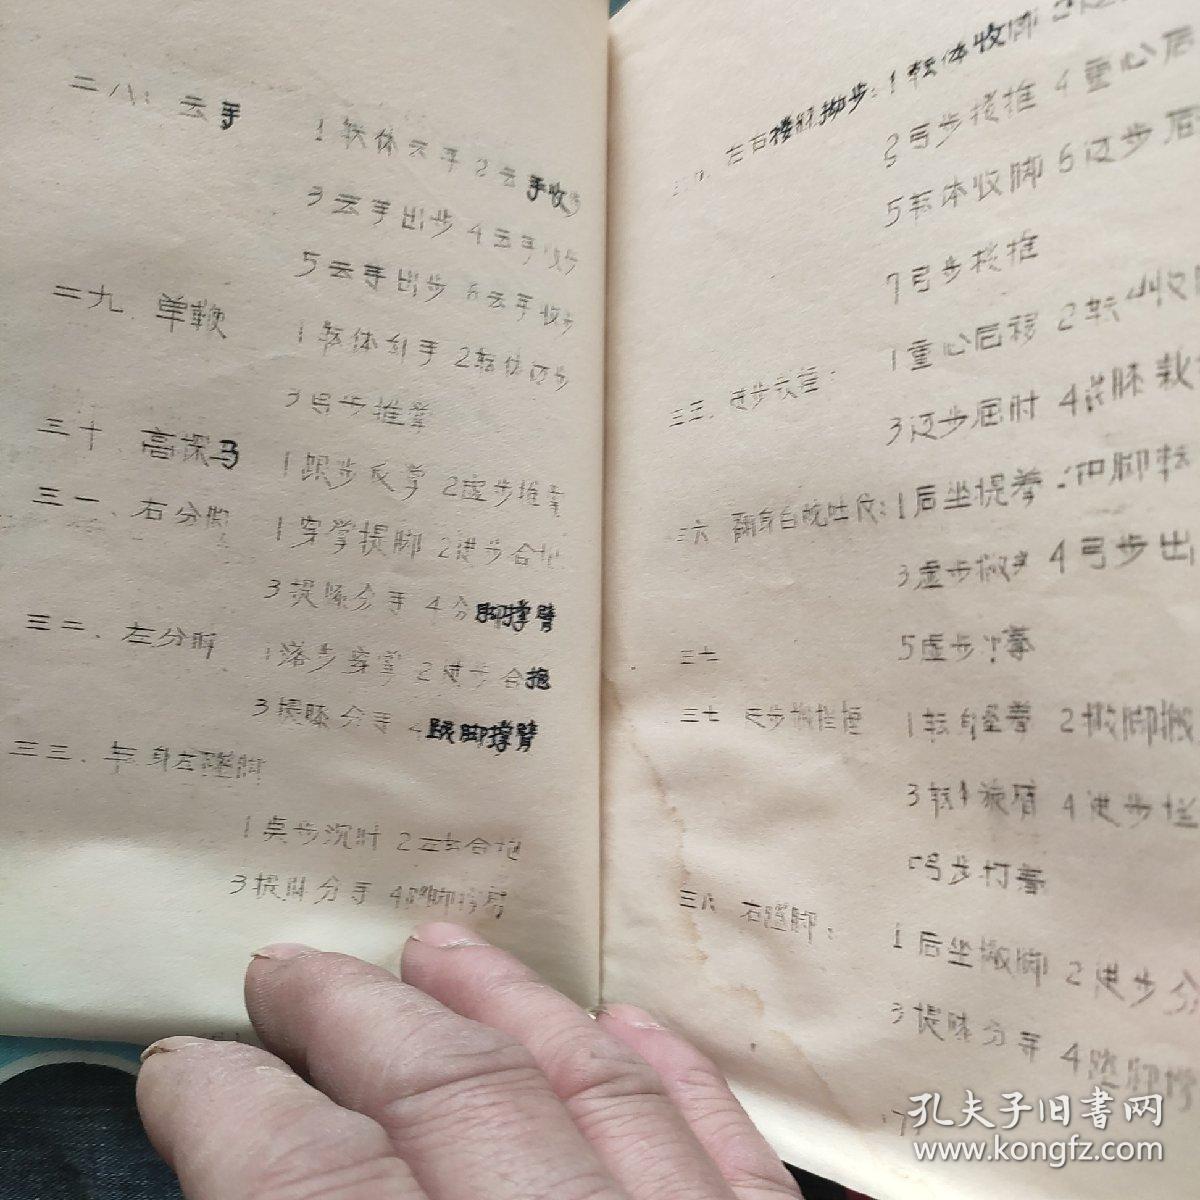 二八: 云手
1转体云手 2云手收步
3云手出步 4云手收步
5云手出步 6云手收步
二九. 单鞭
1转体勾手 2转体迈步
3弓步推掌
三十 高探马
1跟步反掌 2虚步推掌
三一. 右分脚
1穿掌提脚 2进步合抱
3提膝分手 4分脚撑臂
三二. 左分脚
1落步穿掌 2进步合抱
3提膝分手 4踢脚撑臂
三三. 转身左蹬脚
1 步沉肘 2 合抱
3提膝分手 4蹬脚撑臂
左右搂膝拗步: 1转体收脚
3弓步搂推 4重心后
5转体收脚 6迈步屈
7弓步搂推
三五. 进步栽捶:
1重心后移 2转体收脚
3迈步屈肘 4搂膝栽
三六 翻身白蛇吐信:
1后坐提拳 2扣脚转
3虚步 4弓步出
5虚步冲拳
三七
三七 进步搬拦捶
1转身 拳 2撇脚搬
3转体旋臂 4进步拦
5弓步打拳
三八 右蹬脚:
1后坐撇脚 2进步分
3提膝分手 4蹬脚撑
孔夫子旧书网
www.kongfz.com